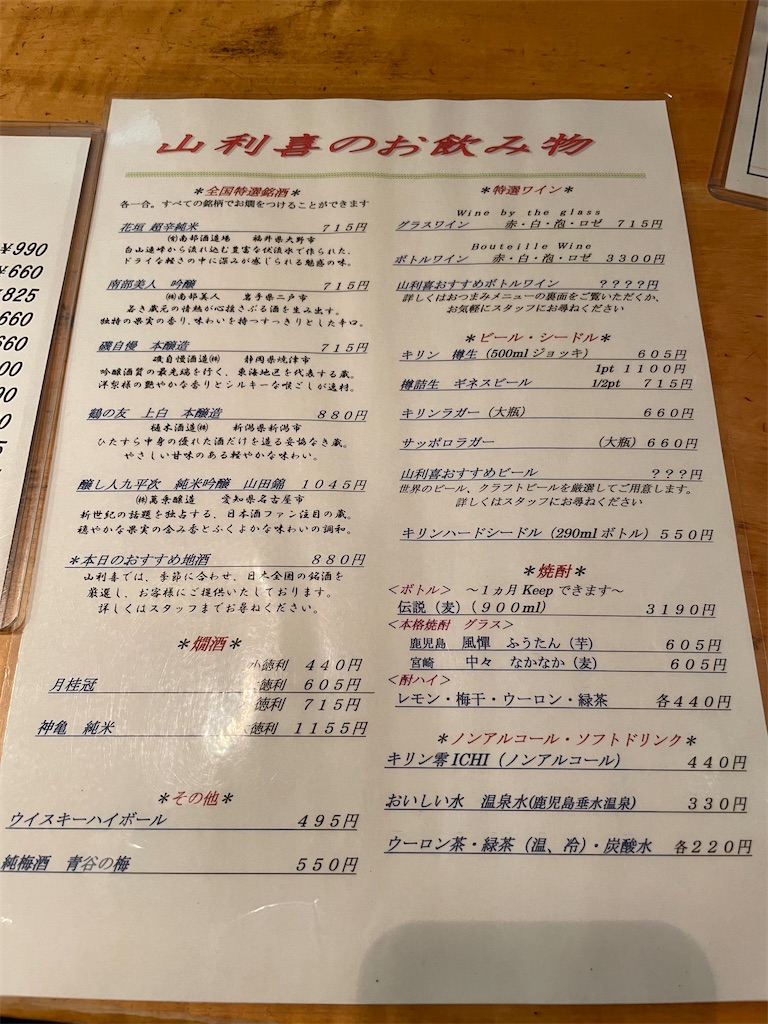 山利喜のお飲み物
＊全国特選銘酒＊
各一合。すべての銘柄でお燗をつけることができます
花垣 超辛純米 ７１５円
㈲南部酒造場 福井県大野市
白山連峰から流れ込む豊富な伏流水で作られた、
ドライな軽さの中に深みが感じられる魅惑の味。
南部美人 吟醸 ７１５円
㈱南部美人 岩手県二戸市
若き蔵元の情熱が心揺さぶる酒を生み出す。
独特の果実の香り、味わいを持つすっきりとした辛口。
磯自慢 本醸造 ７１５円
磯自慢酒造㈱ 静岡県焼津市
吟醸酒質の最先端を行く、東海地区を代表する蔵。
洋梨様の艶やかな香りとシルキーな喉ごしが逸材。
鶴の友 上白 本醸造 ８８０円
樋木酒造㈱ 新潟県新潟市
ひたすら中身の優れた酒だけを造る妥協なき蔵。
やさしい甘味のある軽やかな味わい。
醸し人九平次 純米吟醸 山田錦 １０４５円
㈱萬乗醸造 愛知県名古屋市
新世紀の話題を独占する、日本酒ファン注目の蔵。
穏やかな果実の含み香とふくよかな味わいの調和。
＊本日のおすすめ地酒 ８８０円
山利喜では、季節に合わせ、日本全国の銘酒を
厳選し、お客様にご提供いたしております。
詳しくはスタッフまでお尋ねください。
＊燗酒＊
小徳利 ４４０円
月桂冠 徳利 ６０５円
徳利 ７１５円
神亀 純米 徳利 １１５５円
＊その他＊
ウイスキーハイボール ４９５円
純梅酒 青谷の梅 ５５０円
＊特選ワイン＊
Wine by the glass
グラスワイン 赤・白・泡・ロゼ ７１５円
Bouteille Wine
ボトルワイン 赤・白・泡・ロゼ ３３００円
山利喜おすすめボトルワイン ？？？？円
詳しくはおつまみメニューの裏面をご覧いただくか、
お気軽にスタッフにお尋ねください
＊ビール・シードル＊
キリン 樽生（500mlジョッキ） ６０５円
1pt １１００円
樽詰生 ギネスビール 1/2pt ７１５円
キリンラガー（大瓶） ６６０円
サッポロラガー （大瓶）６６０円
山利喜おすすめビール ？？？円
世界のビール、クラフトビールを厳選してご用意します。
詳しくはスタッフにお尋ねください
キリンハードシードル（290mlボトル）５５０円
＊焼酎＊
＜ボトル＞ ～１ヵ月Keepできます～
伝説（麦）（９００ml） ３１９０円
＜本格焼酎 グラス＞
鹿児島 風憚 ふうたん（芋） ６０５円
宮崎 中々 なかなか（麦） ６０５円
＜酎ハイ＞
レモン・梅干・ウーロン・緑茶 各４４０円
＊ノンアルコール・ソフトドリンク＊
キリン零ICHI（ノンアルコール） ４４０円
おいしい水 温泉水(鹿児島垂水温泉) ３３０円
ウーロン茶・緑茶（温、冷）・炭酸水 各２２０円
¥990
¥660
825
660
660